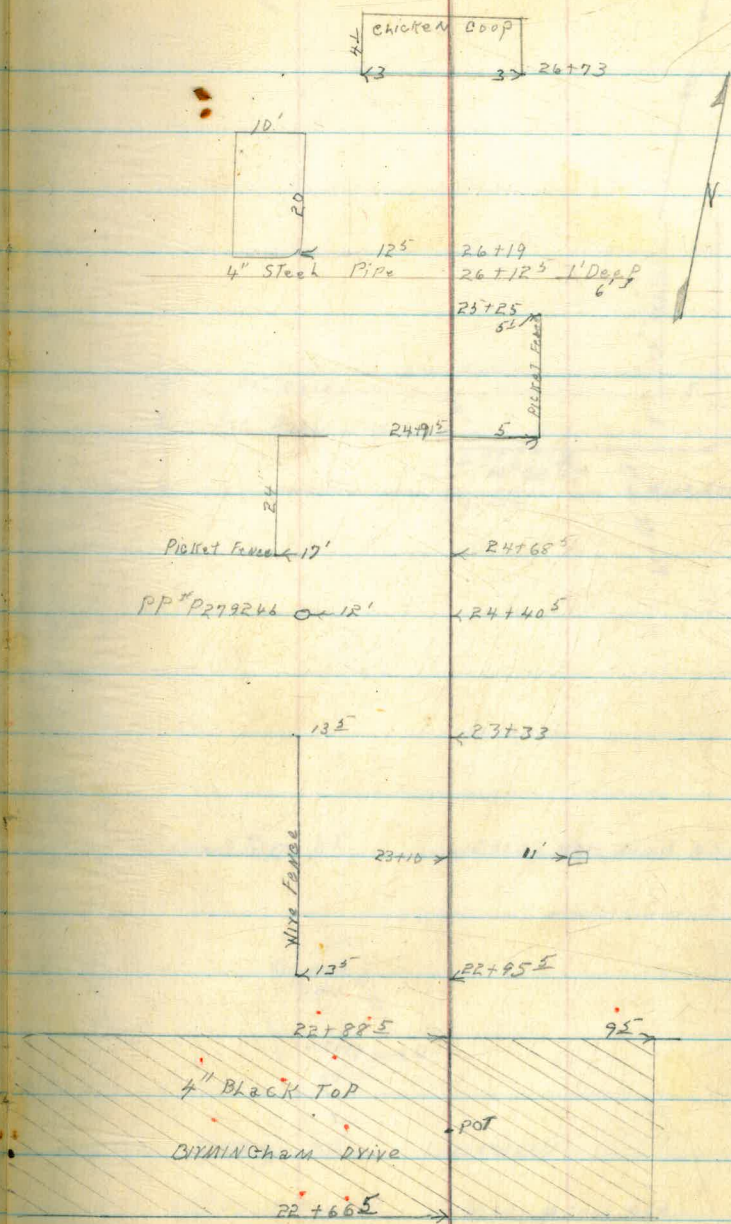 Chicken Coop
4 1
3 3 26+73
10'
20
12 5 26+19
4" Steel Pipe 26+12 5 1' Deep
6' 3
25+25
5 1
Picket Fence
24+91 5 5
24"
Picket Fence 17' 24+68 5
PP #P279246 12' 24+40 5
13 5 23+33
Wire Fence
23+10 11'
13 5 22+95 5
22+88 5 9 5
4" Black Top
POT
Birmingham Drive
22+66 5
N